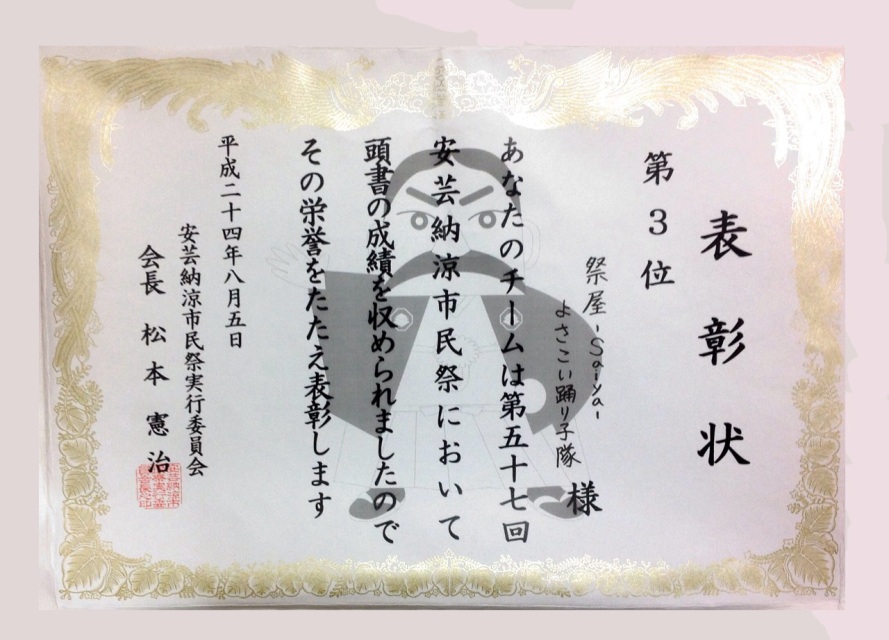 表彰状
第3位
祭屋-Saiya-
よさこい踊り子隊 様
あなたのチームは第五十七回
安芸納涼市民祭において
頭書の成績を収められましたので
その栄誉をたたえ表彰します
平成二十四年八月五日
安芸納涼市民祭実行委員会
会長 松本憲治